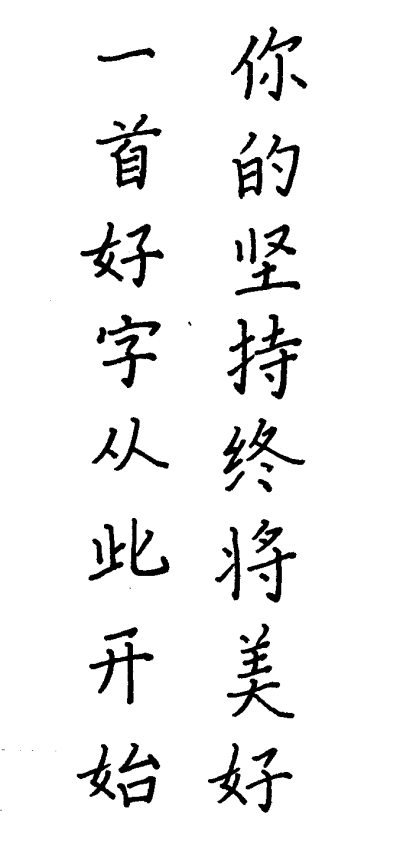 你的坚持终将美好
一首好字从此开始